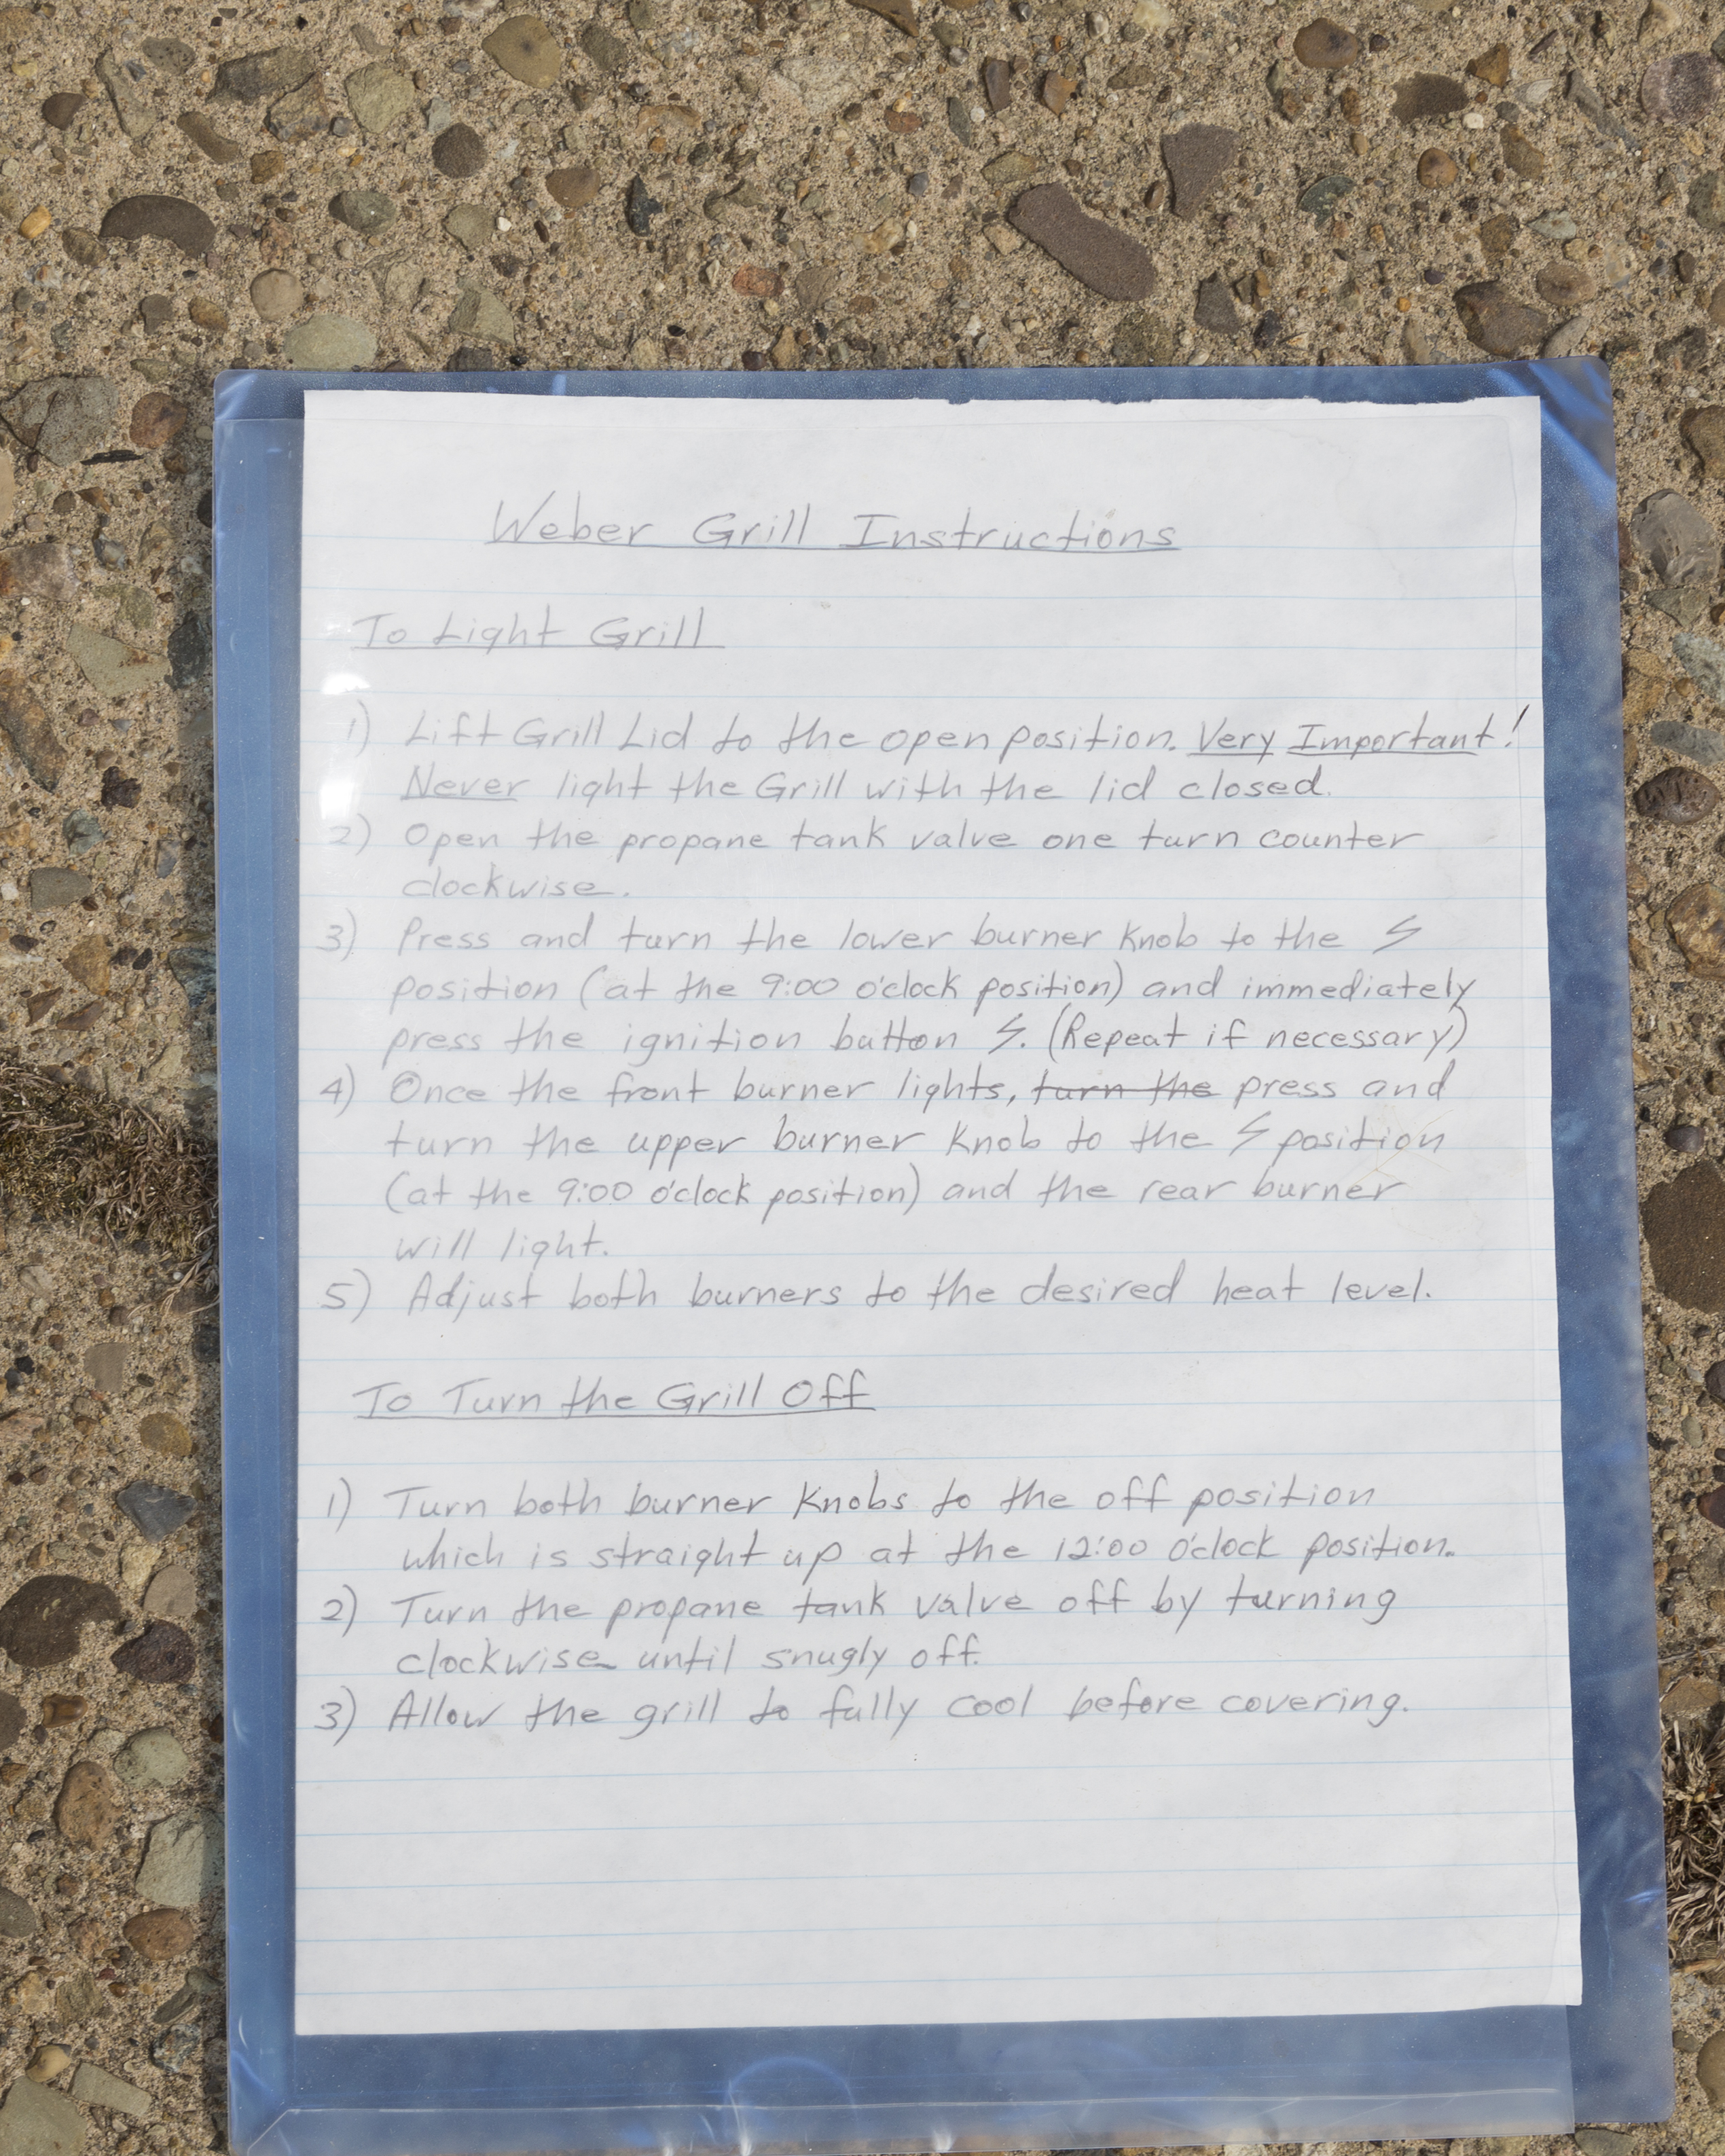 Weber Grill Instructions
To Light Grill
1) Lift Grill Lid to the open position. Very Important!
Never light the Grill with the lid closed.
2) Open the propane tank valve one turn counter
clockwise.
3) Press and turn the lower burner knob to the ϟ
position (at the 9:00 o'clock position) and immediately
press the ignition button ϟ. (Repeat if necessary)
4) Once the front burner lights, turn the press and
turn the upper burner knob to the ϟ position
(at the 9:00 o'clock position) and the rear burner
will light.
5) Adjust both burners to the desired heat level.
To Turn the Grill Off
1) Turn both burner knobs to the off position
which is straight up at the 12:00 o'clock position.
2) Turn the propane tank valve off by turning
clockwise until snugly off.
3) Allow the grill to fully cool before covering.